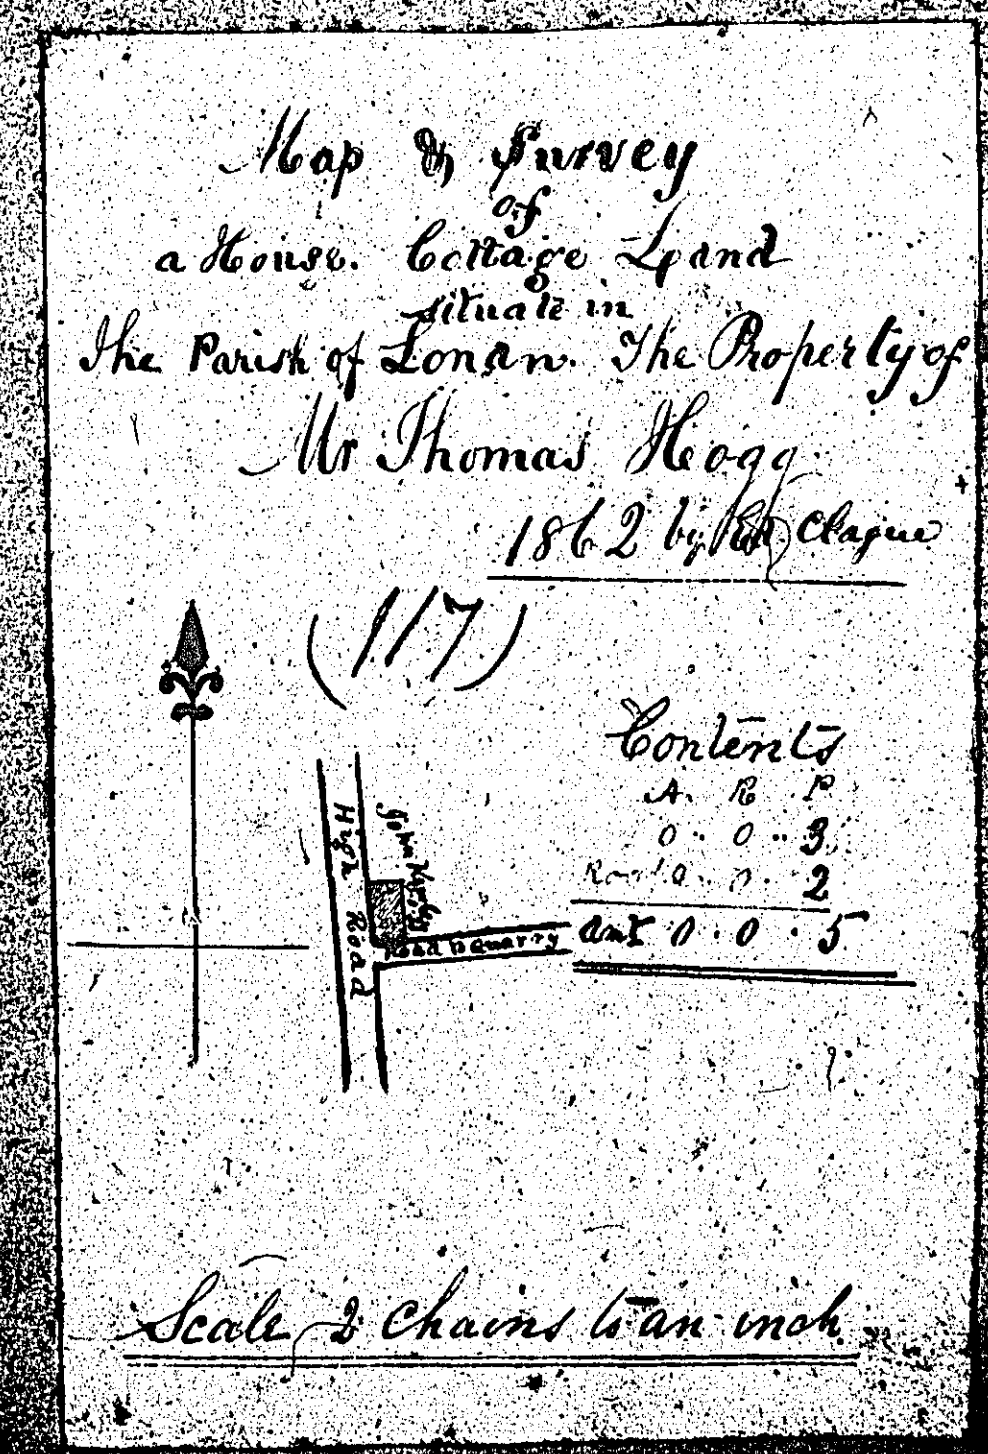 Map & Survey
of
a House. Cottage & Land
situate in
the Parish of Lonan. The Property of
Mr Thomas Hogg
1862 by Clague
(117)
Contents
A. R P
0 .. 0 .. 3
Road 0 .. 0 .. 2
Amt 0 . 0 . 5
High Road
John
Road to Quarry
Scale 2 Chains to an inch